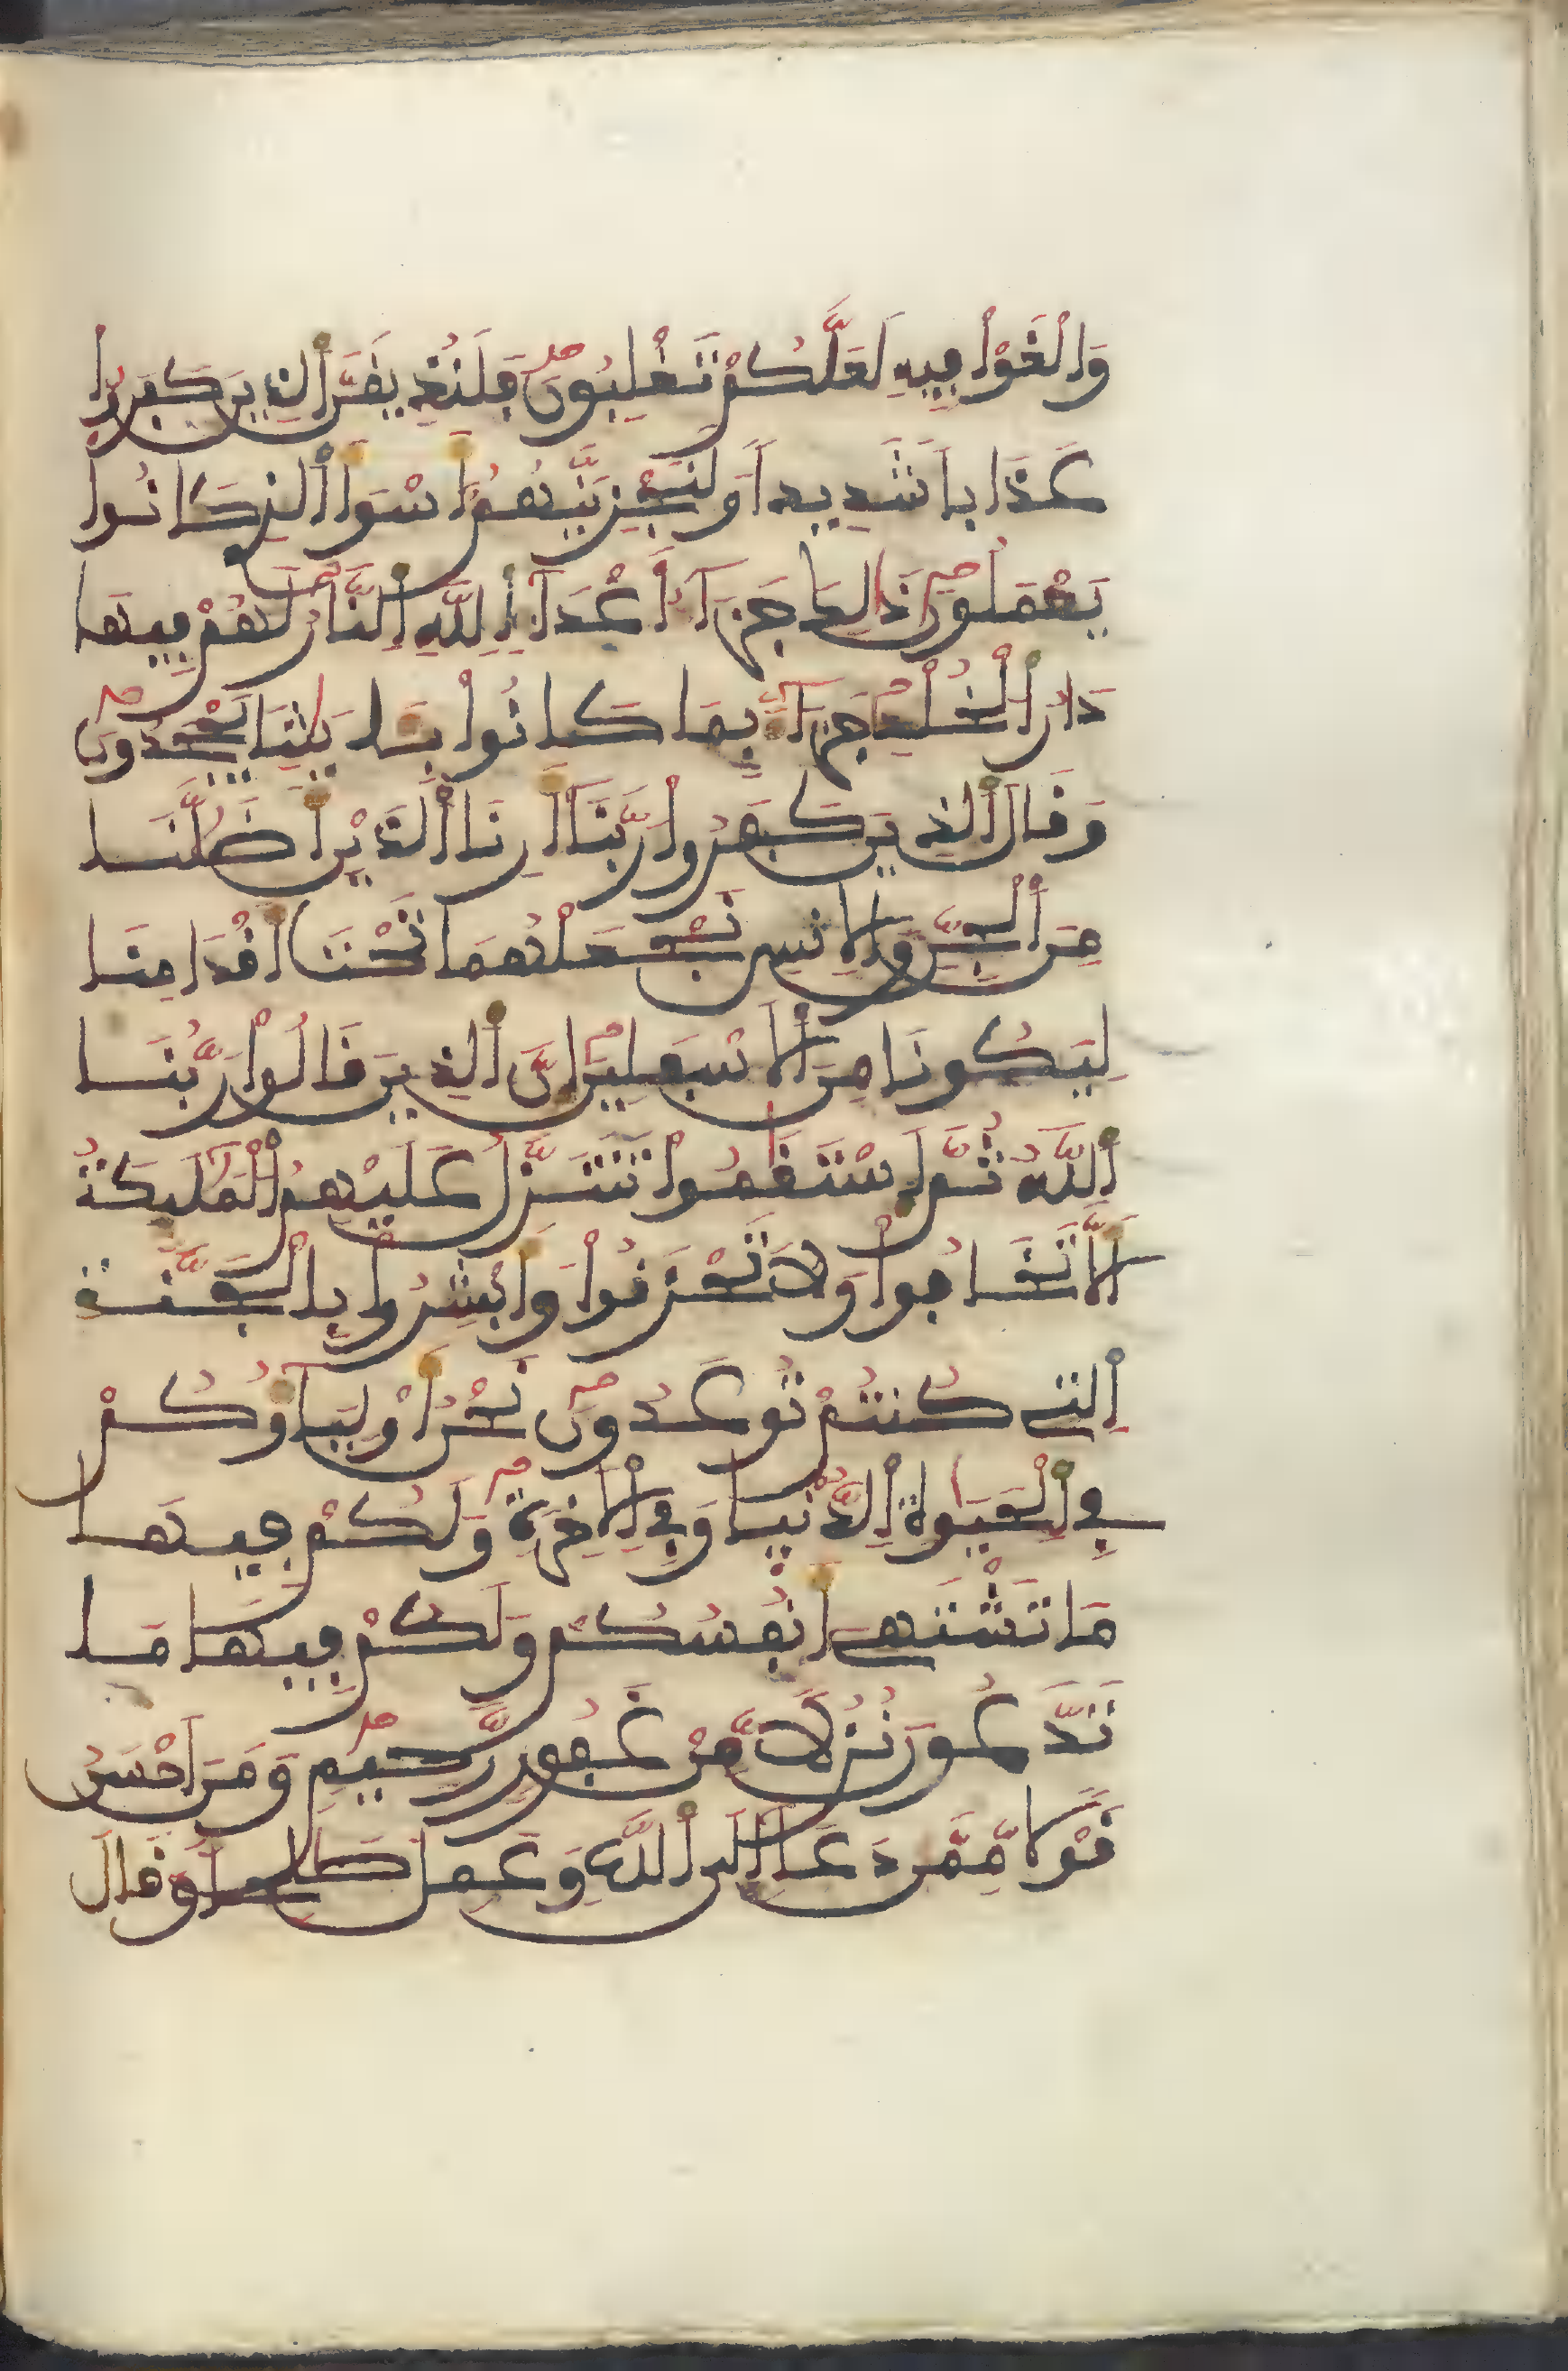 وَالْغَوْا فِيهِ لَعَلَّكُمْ تَغْلِبُونَ فَلَنُذِيقَنَّ ٱلذِينَ كَفَرُوا
عَذَابا شَدِيدا وَلَنَجْزِيَنَّهُمُ أَسْوَأَ ٱلذِے كَانُوا
يَعْمَلُونَ ذَٰلِكَ جَزَآءُ اَعْدَآءِ اِ۬للَّهِ اِ۬لنَّارُ لَهُمْ فِيهَا
دَارُ اُ۬لْخُلْدِ جَزَآءَۢ بِمَا كَانُوا بِـَٔايَٰتِنَا يَجْحَدُونَ
وَقَالَ اَ۬لذِينَ كَفَرُوا رَبَّنَآ أَرِنَا اَ۬لذَيْنِ أَضَلَّٰنَا
مِنَ اَ۬لْجِنِّ وَالِانسِ نَجْعَلْهُمَا تَحْتَ أَقْدَامِنَا
لِيَكُونَا مِنَ اَ۬لَاسْفَلِينَ إِنَّ اَ۬لذِينَ قَالُوا رَبُّنَا
اَ۬للَّهُ ثُمَّ اَ۪سْتَقَٰمُوا تَتَنَزَّلُ عَلَيْهِمُ اُ۬لْمَلَٰٓئِكَةُ
أَلَّا تَخَافُوا وَلَا تَحْزَنُوا وَأَبْشِرُوا بِالْجَنَّةِ
اِ۬لتِے كُنتُمْ تُوعَدُونَ نَحْنُ أَوْلِيَآؤُكُمْ
فِے اِ۬لْحَيَوٰةِ اِ۬لدُّنْيَا وَفِے اِ۬لَاخِرَةِ وَلَكُمْ فِيهَا
مَا تَشْتَهِے أَنفُسُكُمْ وَلَكُمْ فِيهَا مَا
تَدَّعُونَ نُزُلا مِّنْ غَفُورٍ رَّحِيمٍ وَمَنَ اَحْسَنُ
قَوْلا مِّمَّن دَعَآ إِلَى اَ۬للَّهِ وَعَمِلَ صَٰلِحا وَقَالَ